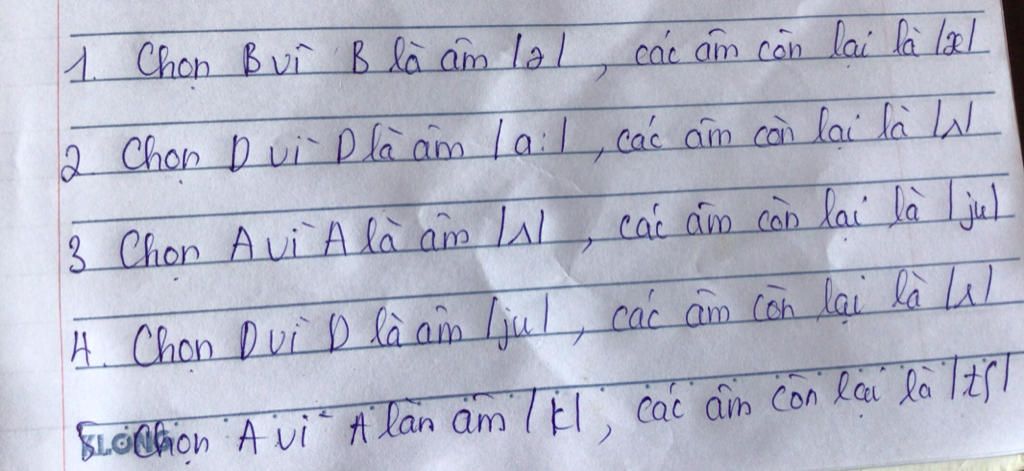 1. Chọn B vì B là âm /ə/, các âm còn lại là /æ/
2 Chọn D vì D là âm /a:/, các âm còn lại là /ʌ/
3 Chọn A vì A là âm /ʌ/, các âm còn lại là /ju/
4. Chọn D vì D là âm /ju/, các âm còn lại là /ʌ/
5. Chọn A vì A làn âm /k/, các âm còn lại là /tʃ/
KLONG